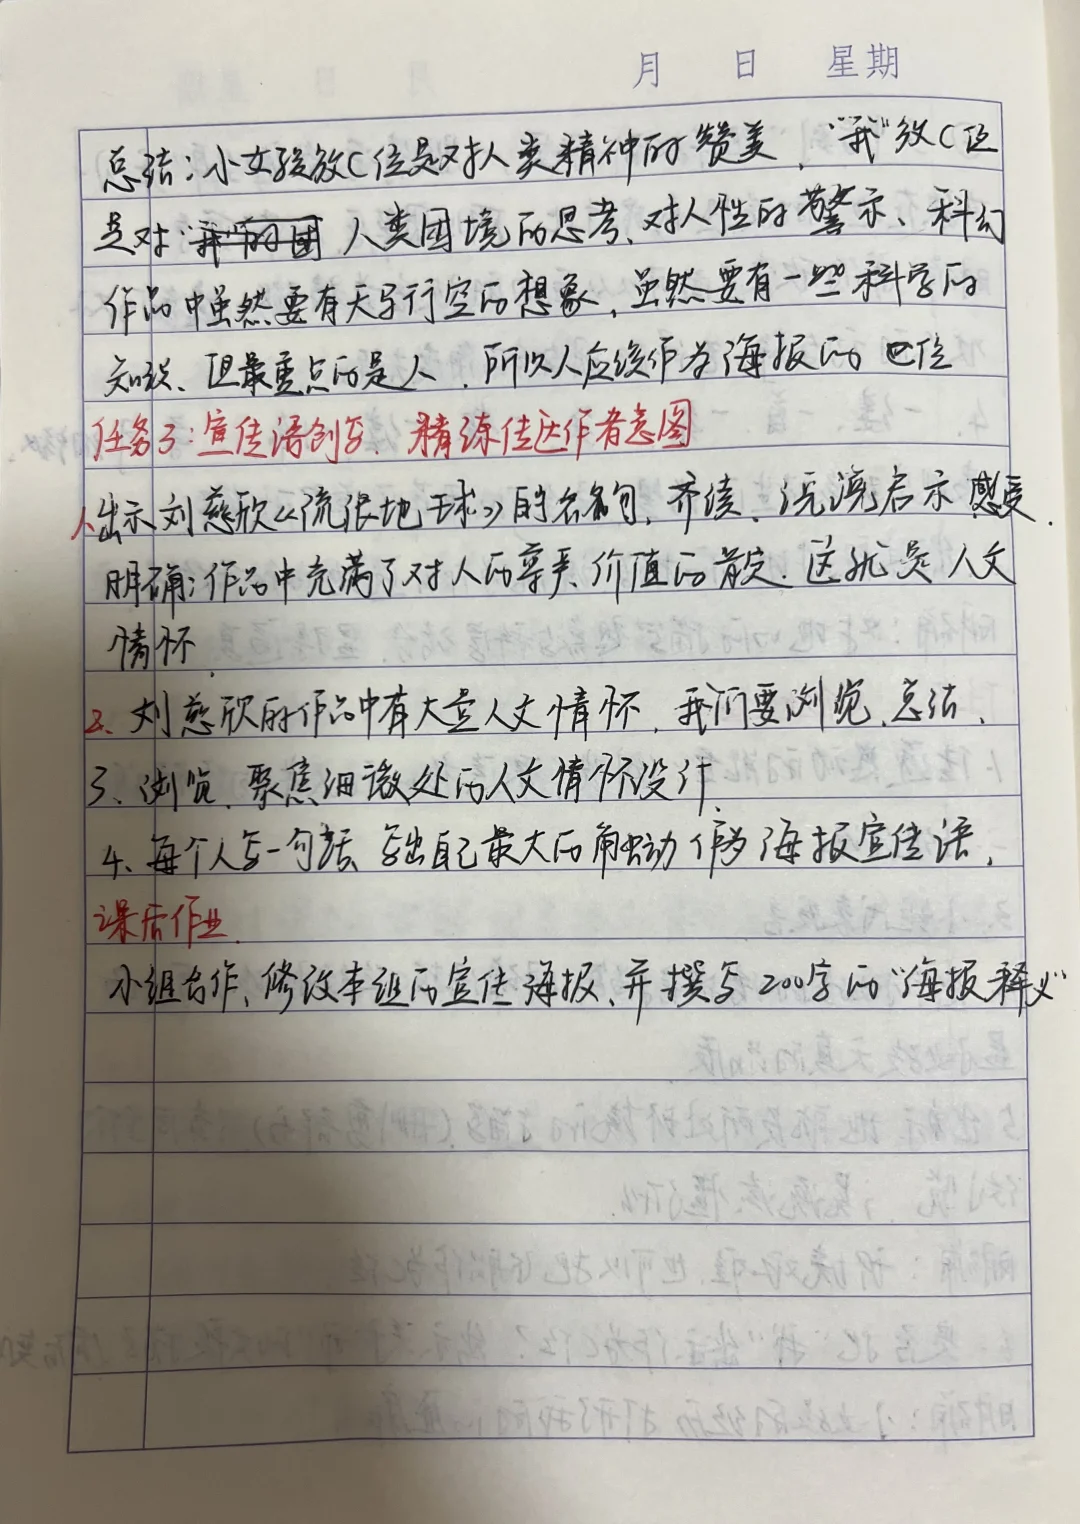 月 日 星期
总结:小女孩放C位是对人类精神的赞美,“我”放C位
是对“我”的困 人类困境的思考、对人性的警示、科幻
作品中虽然要有天马行空的想象,虽然要有一些科学的
知识、但最重点的是人,所以人应该作为海报的C位
任务3:宣传语创写、精练传达作者意图
1、出示刘慈欣《流浪地球》的名句,齐读、浅浅启示感受.
明确:作品中充满了对人的尊严、价值的肯定.这就是人文
情怀.
2、刘慈欣的作品中有大量人文情怀,我们要浏览、总结、
3、浏览、聚焦细微处的人文情怀设计.
4、每个人写一句话、写出自己最大的触动作为海报宣传语,
课后作业.
小组合作、修改本组的宣传海报、并撰写200字的“海报释义”